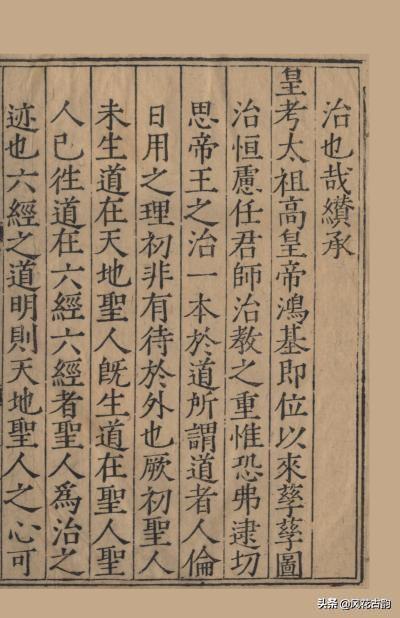 治也哉纘承
皇考太祖高皇帝鴻基即位以來孳孳圖
治恒慮任君師治教之重惟恐弗逮切
思帝王之治一本於道所謂道者人倫
日用之理初非有待於外也厥初聖人
未生道在天地聖人旣生道在聖人聖
人已徃道在六經六經者聖人爲治之
迹也六經之道明則天地聖人之心可
头条@风花古韵